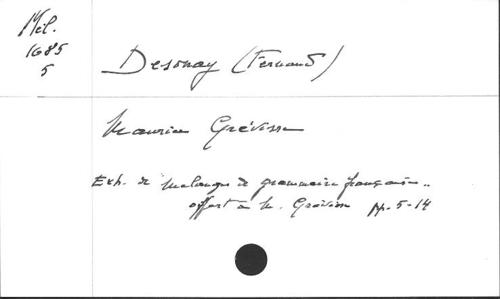 Mél.
1685
5
Desonay (Fernand)
Maurice Grévisse
Extr. de Mélanges de grammaire française..
offert à M. Grévisse pp. 5-14